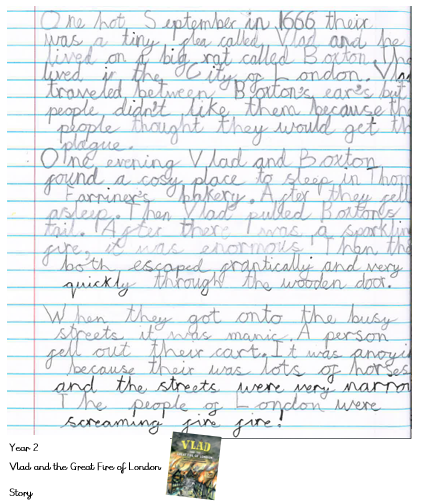 One hot September in 1666 their
was a tiny flea called Vlad and he
lived on a big rat called Boxton. The
lived in the City of London. Vlad
traveled between Boxton's ear's but
people didn't like them because the
people thought they would get th
plague.
One evening Vlad and Boxton
found a cosy place to sleep in Thom
Farriner's bakery. After they fell
asleep. Then Vlad pulled Boxton's
tail. After there was a sparklin
fire, it was enormous! Then the
both escaped frantically and very
quickly through the wooden door.
When they got onto the busy
streets it was manic. A person
fell out their cart. It was anoyin
because their was lots of horses
and the streets were very narro
The people of London were
screaming fire fire!
Year 2
Vlad and the Great Fire of London
Story
VLAD